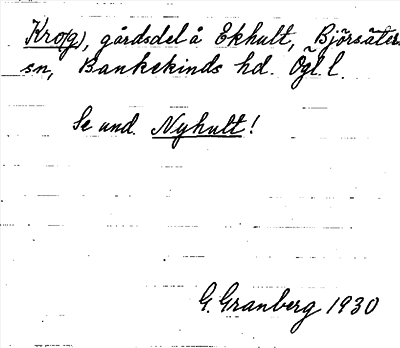 Kro(g), gårdsdel å Ekhult, Björsäters
sn, Bankekinds hd. Ögl. l.
Se und. Nyhult!
G. Granberg 1930